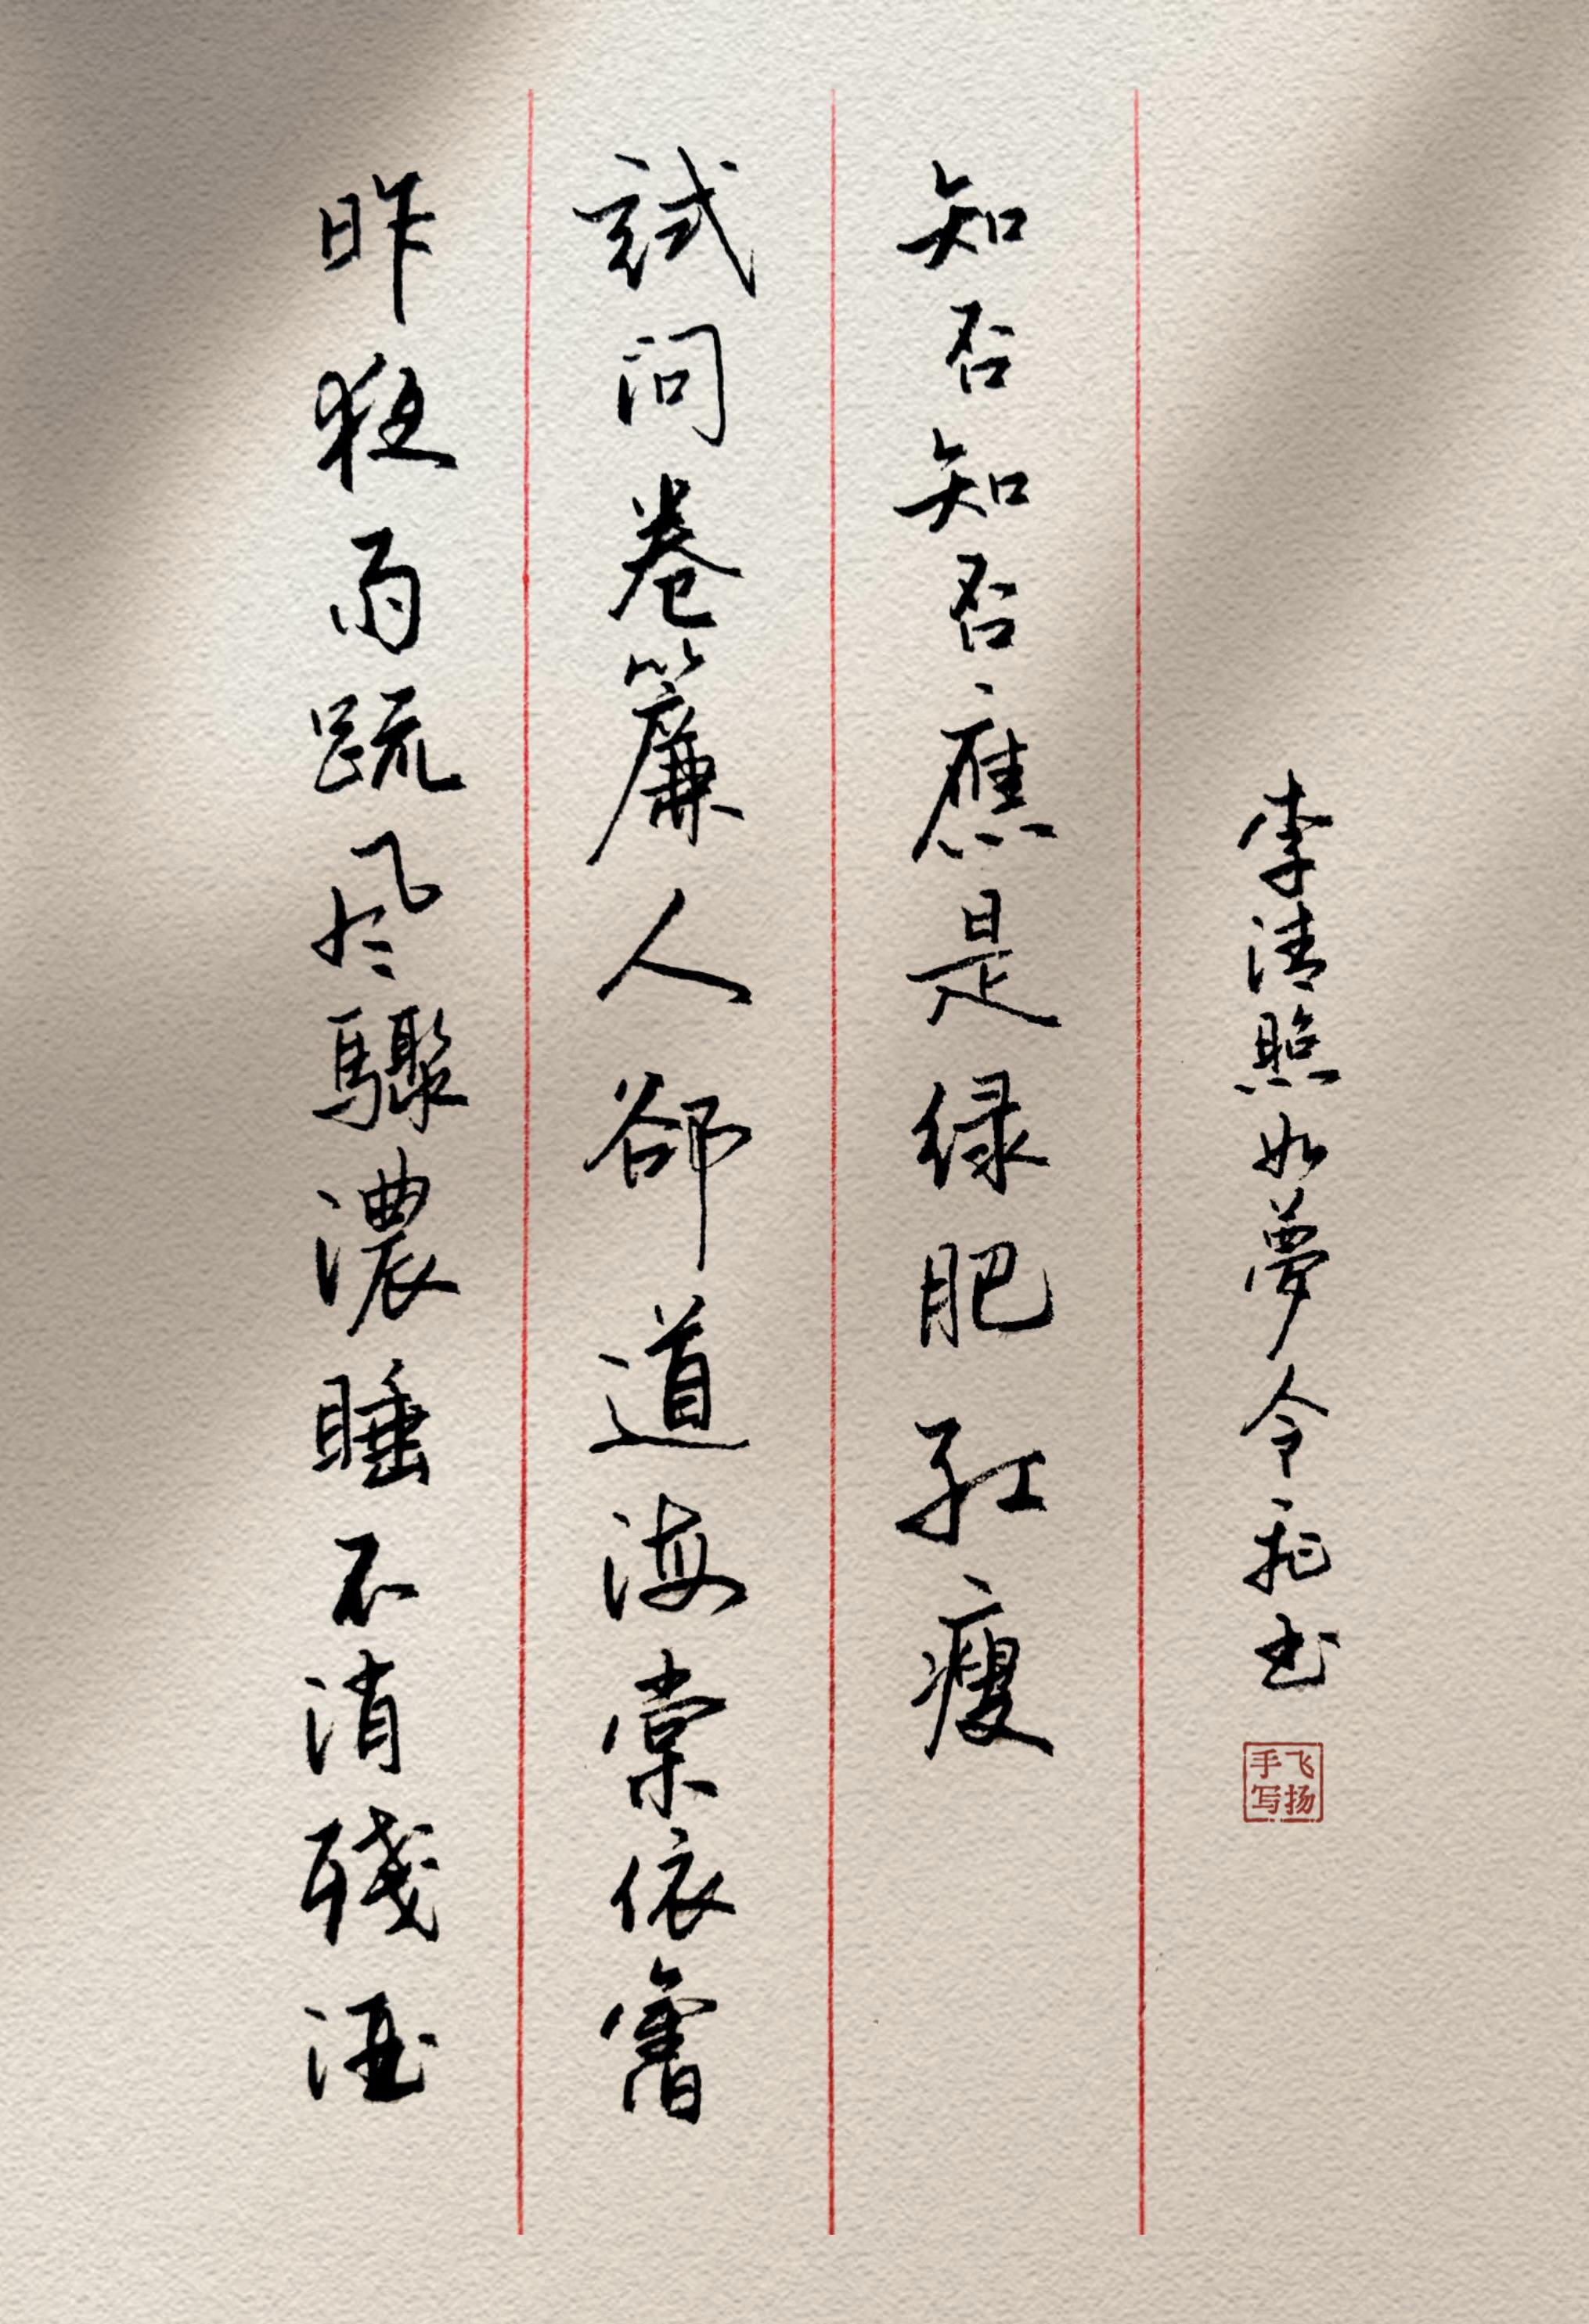 昨夜雨疏风驟濃睡不消殘酒
試问卷簾人郤道海棠依舊
知否知否應是绿肥红瘦
李清照如夢令书
飞扬
手写